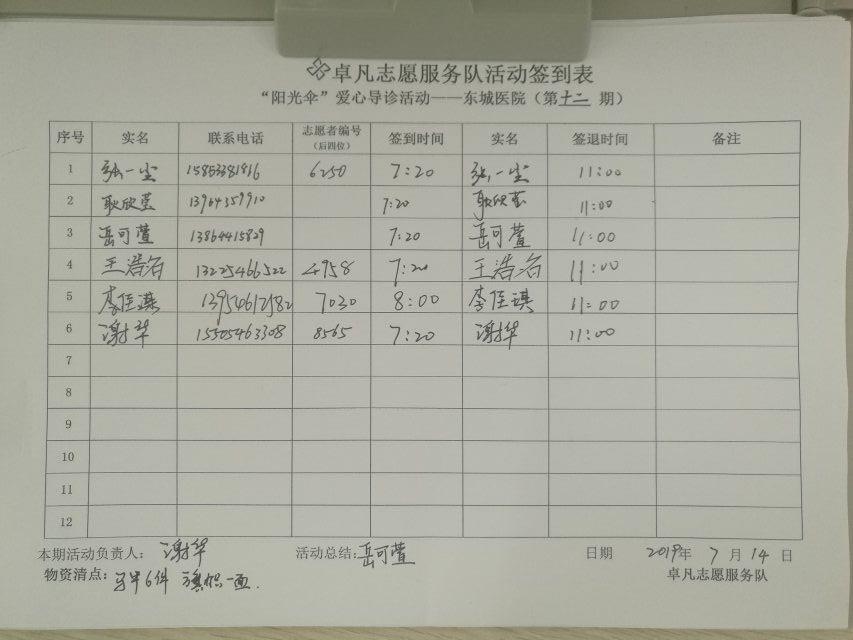 卓凡志愿服务队活动签到表
“阳光伞”爱心导诊活动——东城医院（第十二期）
序号 实名 联系电话 志愿者编号（后四位） 签到时间 实名 签退时间 备注
1 张一尘 15853381816 6250 7:20 张一尘 11:00
2 耿欣莹 13964359910 7:20 耿欣莹 11:00
3 岳可萱 13864415829 7:20 岳可萱 11:00
4 王浩名 13225466522 4958 7:20 王浩名 11:00
5 李佳琪 13954612582 7030 8:00 李佳琪 11:00
6 谢华 15505463308 8565 7:20 谢华 11:00
7
8
9
10
11
12
本期活动负责人：谢华 活动总结：岳可萱 日期 2019年7月14日
物资清点：马甲6件 旗帜一面. 卓凡志愿服务队